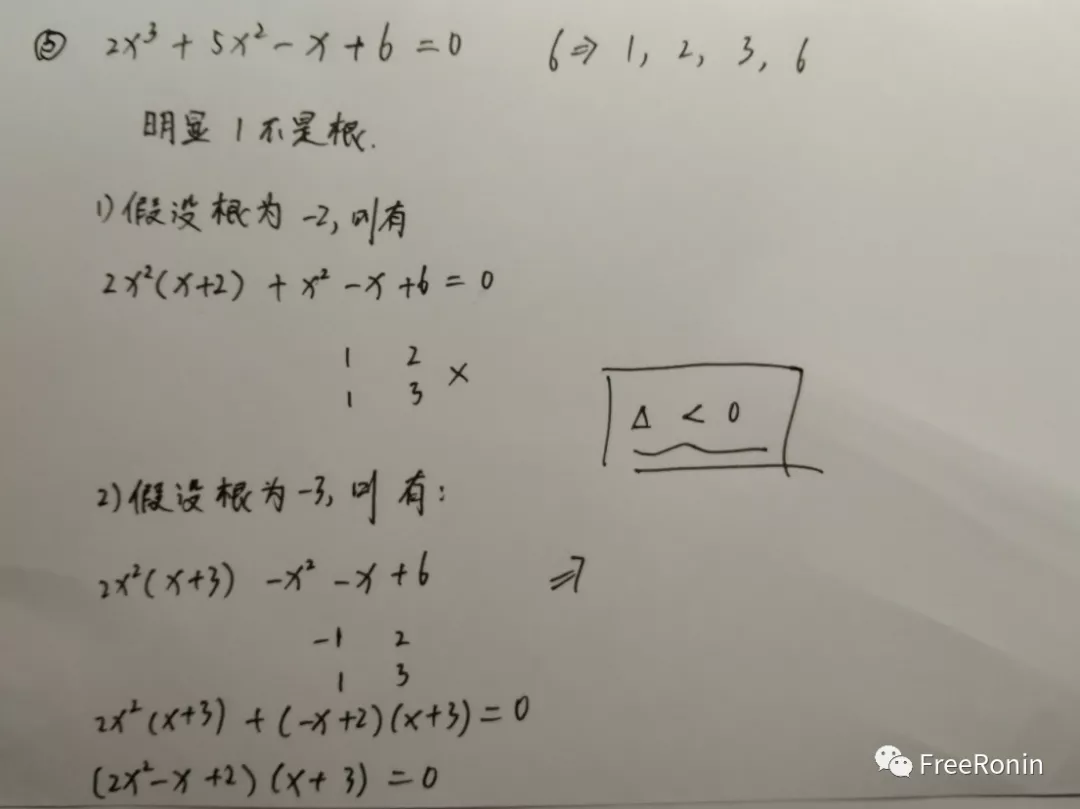 ⑤ 2x³ + 5x² - x + 6 = 0 6 ⇒ 1, 2, 3, 6
明显 1 不是根.
1) 假设根为 -2, 则有
2x²(x+2) + x² - x + 6 = 0
1 2
1 3 ×
Δ < 0
2) 假设根为 -3, 则有:
2x²(x+3) - x² - x + 6 ⇒
-1 2
1 3
2x²(x+3) + (-x+2)(x+3) = 0
(2x² - x + 2)(x + 3) = 0
FreeRonin